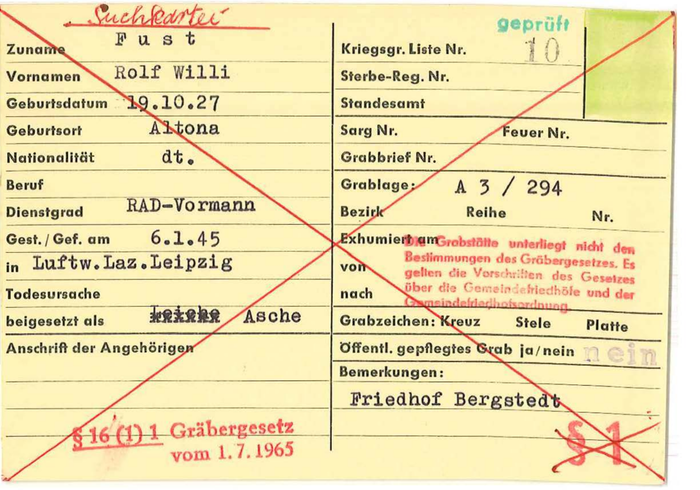 Suchkartei
Zuname Fust
Vornamen Rolf Willi
Geburtsdatum 19.10.27
Geburtsort Altona
Nationalität dt.
Beruf
Dienstgrad RAD-Vormann
Gest./Gef. am 6.1.45
in Luftw.Laz.Leipzig
Todesursache
beigesetzt als Leiche Asche
Anschrift der Angehörigen
§ 16 (1) 1 Gräbergesetz
vom 1.7.1965
geprüft
Kriegsgr. Liste Nr. 10
Sterbe-Reg. Nr.
Standesamt
Sarg Nr. Feuer Nr.
Grabbrief Nr.
Grablage: A 3 / 294
Bezirk Reihe Nr.
Exhumiert am
von
nach
Die Grabstätte unterliegt nicht den
Bestimmungen des Gräbergesetzes. Es
gelten die Vorschriften des Gesetzes
über die Gemeindefriedhöfe und der
Gemeindefriedhofsordnung.
Grabzeichen: Kreuz Stele Platte
Öffentl. gepflegtes Grab ja/nein nein
Bemerkungen:
Friedhof Bergstedt
§ 1